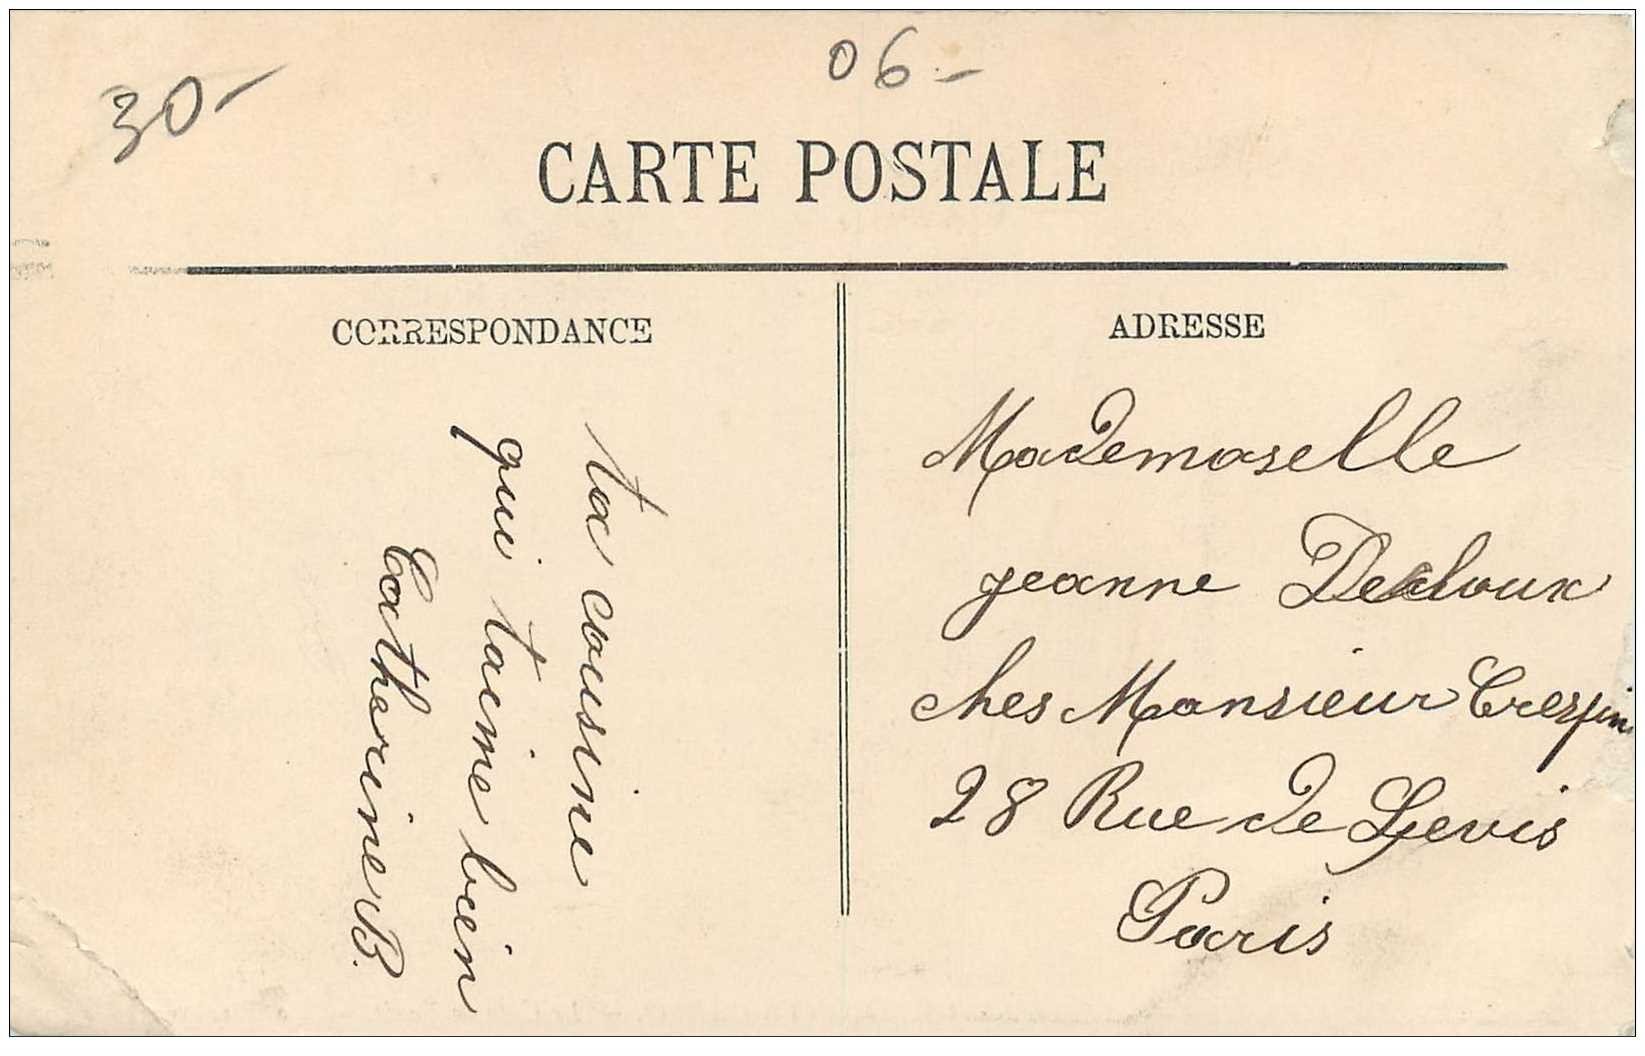 30-
06-
CARTE POSTALE
CORRESPONDANCE
ta cousine
qui taime bien
Catherine B.
ADRESSE
Mademoselle
jeanne
ches Monsieur Crespin
28 Rue de Levis
Paris